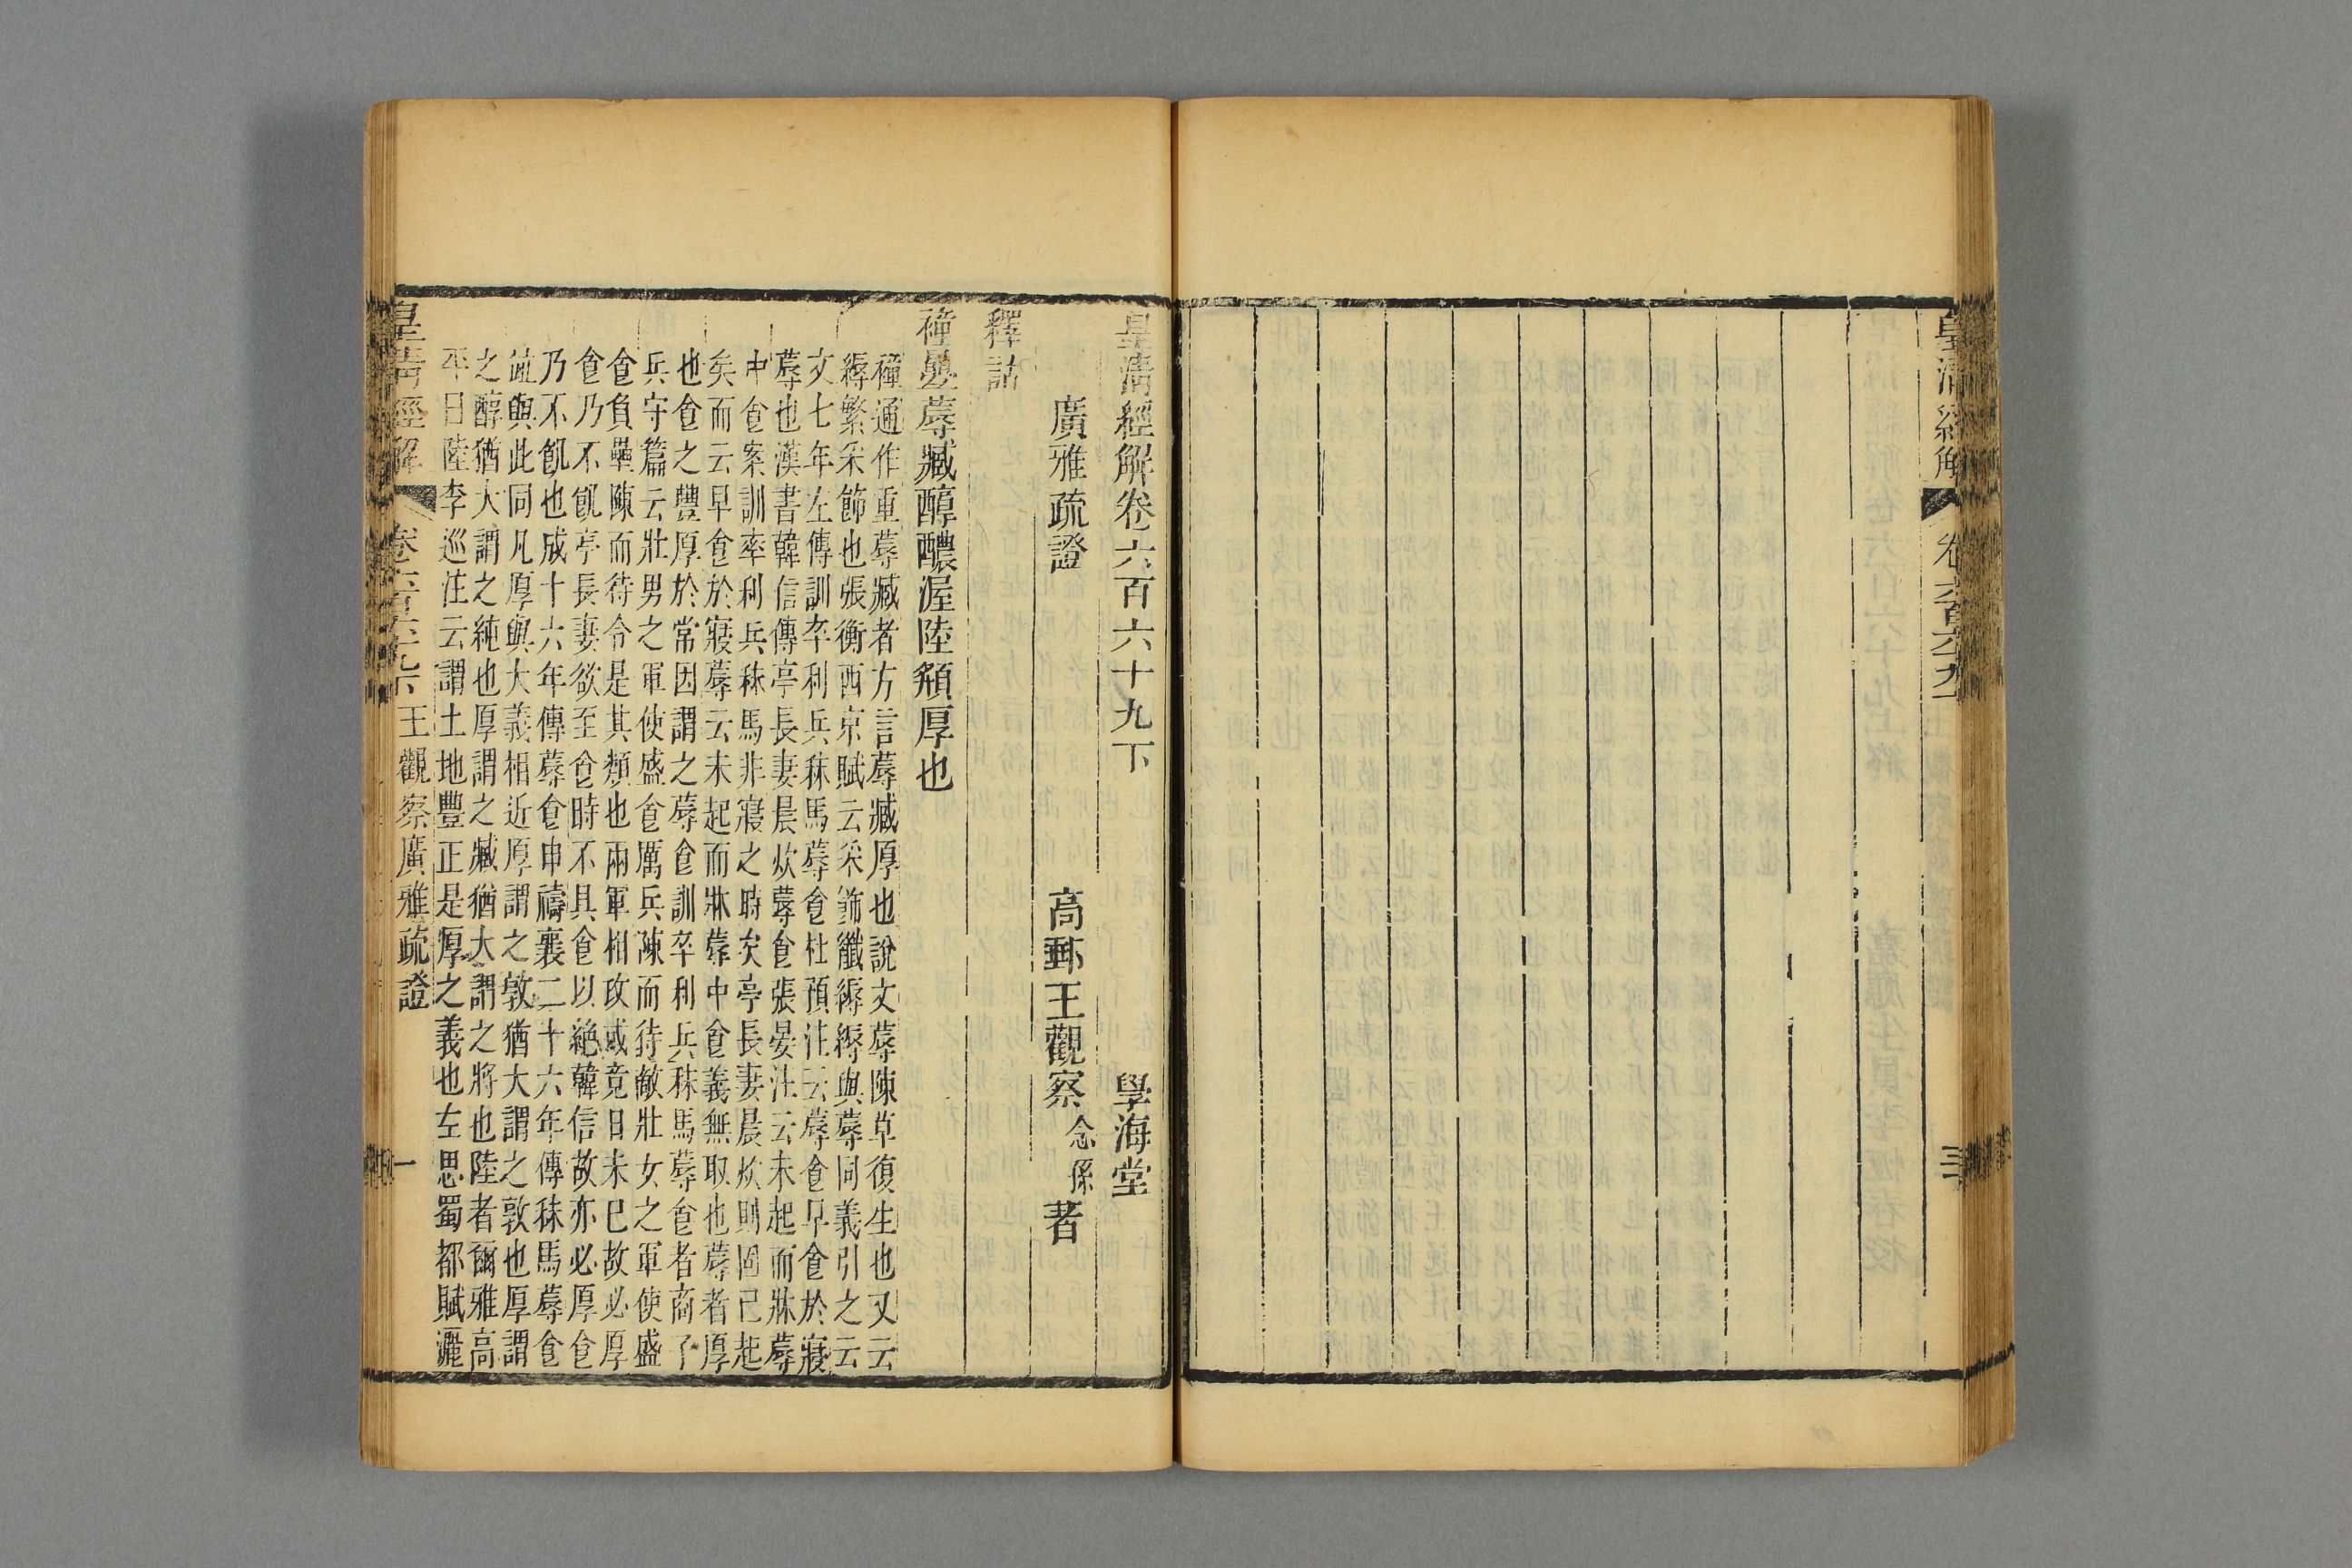 皇清經解
卷六百六十九
三
皇清經解卷六百六十九下 學海堂
廣雅疏證 高郵王觀察念孫著
釋詁
㬪蓐臧醇醲渥陸厚也
通作重蓐臧者方言蓐臧厚也說文蓐陳草復生也又云
縟繁采飾也張衡西京賦云采飾纖縟縟與蓐同義引之云
文七年左傳訓卒利兵秣馬蓐食杜預注云蓐食早食於寢
蓐也漢書韓信傳亭長妻晨炊蓐食張晏注云未起而牀蓐
中食案訓卒利兵秣馬非寢之時矣亭長妻晨炊則固已起
矣而云早食於寢蓐云未起而牀蓐中食義無取也蓐者厚
也食之豐厚於常因謂之蓐食訓卒利兵秣馬蓐食者商子
兵守篇云壯男之軍使盛食厲兵陳而待敵壯女之軍使盛
食負壘陳而待令是其類也兩軍相攻或竟日未已故必厚
食乃不飢亭長妻欲至食時不具食以絶韓信故亦必厚食
乃不飢也成十六年傳蓐食申禱襄二十六年傳秣馬蓐食
竝與此同凡厚與大義相近厚謂之敦猶大謂之敦也厚謂
之醇猶大謂之純也厚謂之臧猶大謂之將也陸者爾雅高
平曰陸李巡注云謂土地豐正是厚之義也左思蜀都賦灑
皇清經解
卷六百六十九下 王觀察廣雅疏證
一